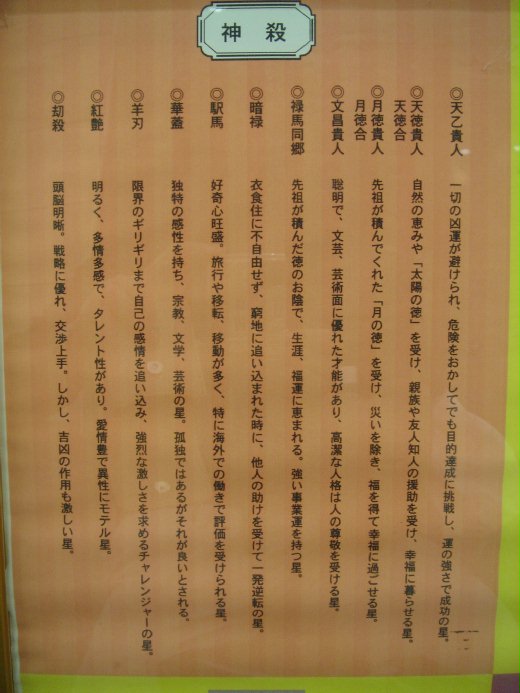 神殺
◎天乙貴人　一切の凶運が避けられ、危険をおかしてでも目的達成に挑戦し、運の強さで成功の星。
◎天徳貴人　自然の恵みや「太陽の徳」を受け、親族や友人知人の援助を受け、幸福に暮らせる星。
天徳合
◎月徳貴人　先祖が積んでくれた「月の徳」を受け、災いを除き、福を得て幸福に過ごせる星。
月徳合
◎文昌貴人　聡明で、文芸、芸術面に優れた才能があり、高潔な人格は人の尊敬を受ける星。
◎禄馬同郷　先祖が積んだ徳のお陰で、生涯、福運に恵まれる。強い事業運を持つ星。
◎暗禄　衣食住に不自由せず、窮地に追い込まれた時に、他人の助けを受けて一発逆転の星。
◎駅馬　好奇心旺盛。旅行や移転、移動が多く、特に海外での働きで評価を受けられる星。
◎華蓋　独特の感性を持ち、宗教、文学、芸術の星。孤独ではあるがそれが良いとされる。
◎羊刃　限界のギリギリまで自己の感情を追い込み、強烈な激しさを求めるチャレンジャーの星。
◎紅艶　明るく、多情多感で、タレント性があり。愛情豊で異性にモテル星。
◎劫殺　頭脳明晰。戦略に優れ、交渉上手。しかし、吉凶の作用も激しい星。